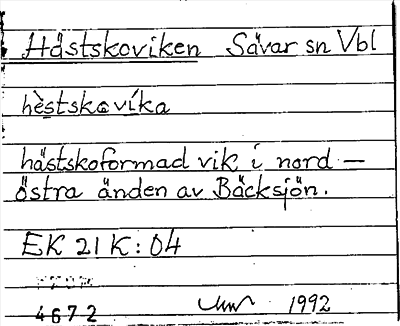 Hästskoviken Sävar sn Vbl
hèstskavíka
hästskoformad vik i nord-
östra änden av Bäcksjön.
EK 21 K:04
4672 1992